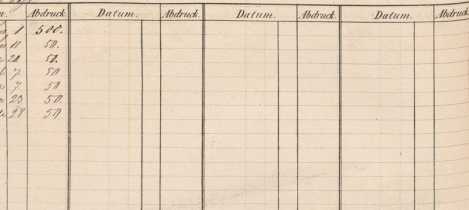 Abdruck. Datum. Abdruck. Datum. Abdruck. Datum. Abdruck.
1 500.
11 50.
20 50.
7 50
7 50
23 50.
28 50